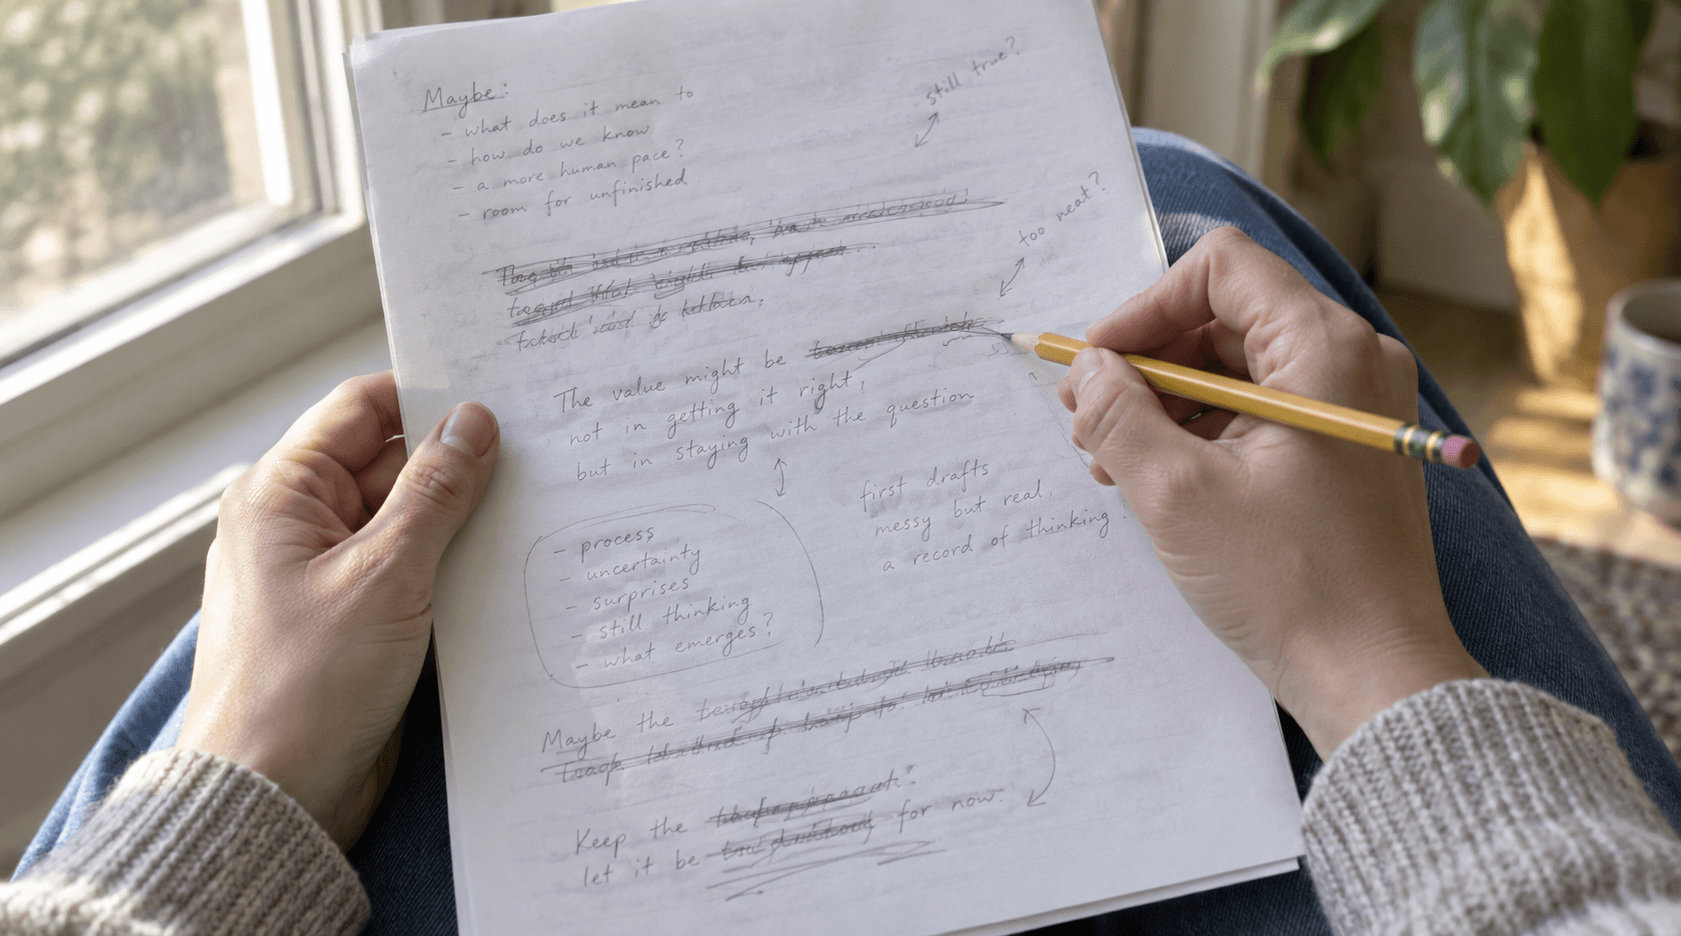 Maybe:
- what does it mean to
- how do we know
- a more human pace?
- room for unfinished
still true?
too neat?
The value might be
not in getting it right,
but in staying with the question
- process
- uncertainty
- surprises
- still thinking
- what emerges?
first drafts
messy but real,
a record of thinking
Maybe the
Keep the
let it be for now.